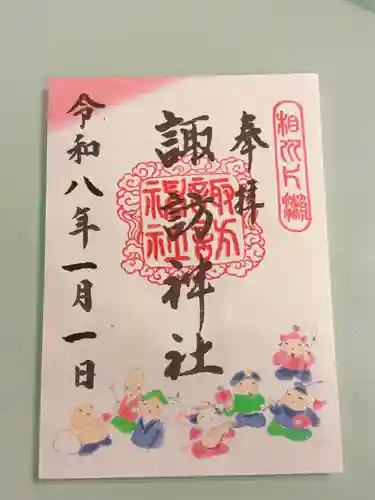 相州片瀬
奉拝
諏訪神社
諏訪
福社
令和八年一月一日